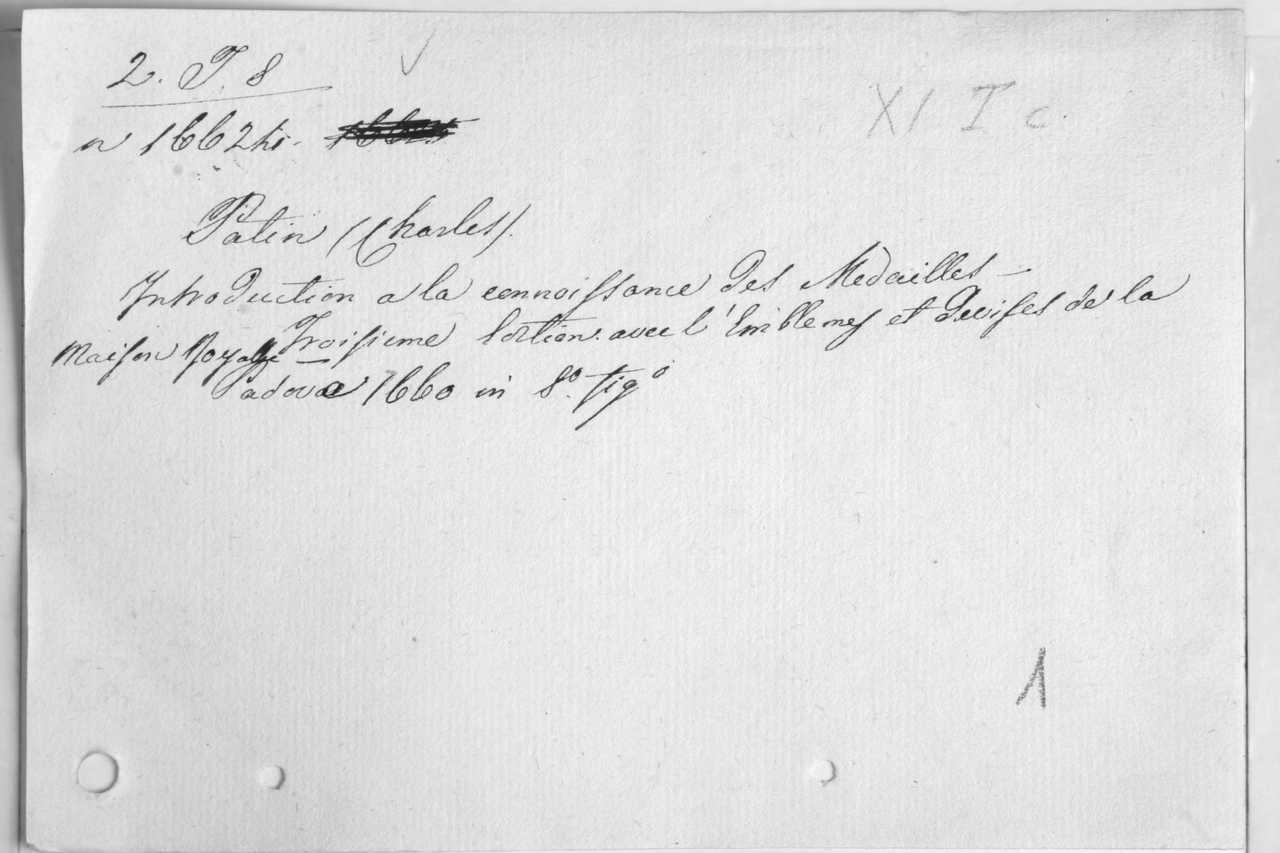 2. T. 8
XI I c.
n 1662
Patin (Charles).
Introduction a la connoissance des Medailles —
Troisieme avec l'Emblemes et Devises de la
Maison Royale
Padova 1660 in 8.º figº
1